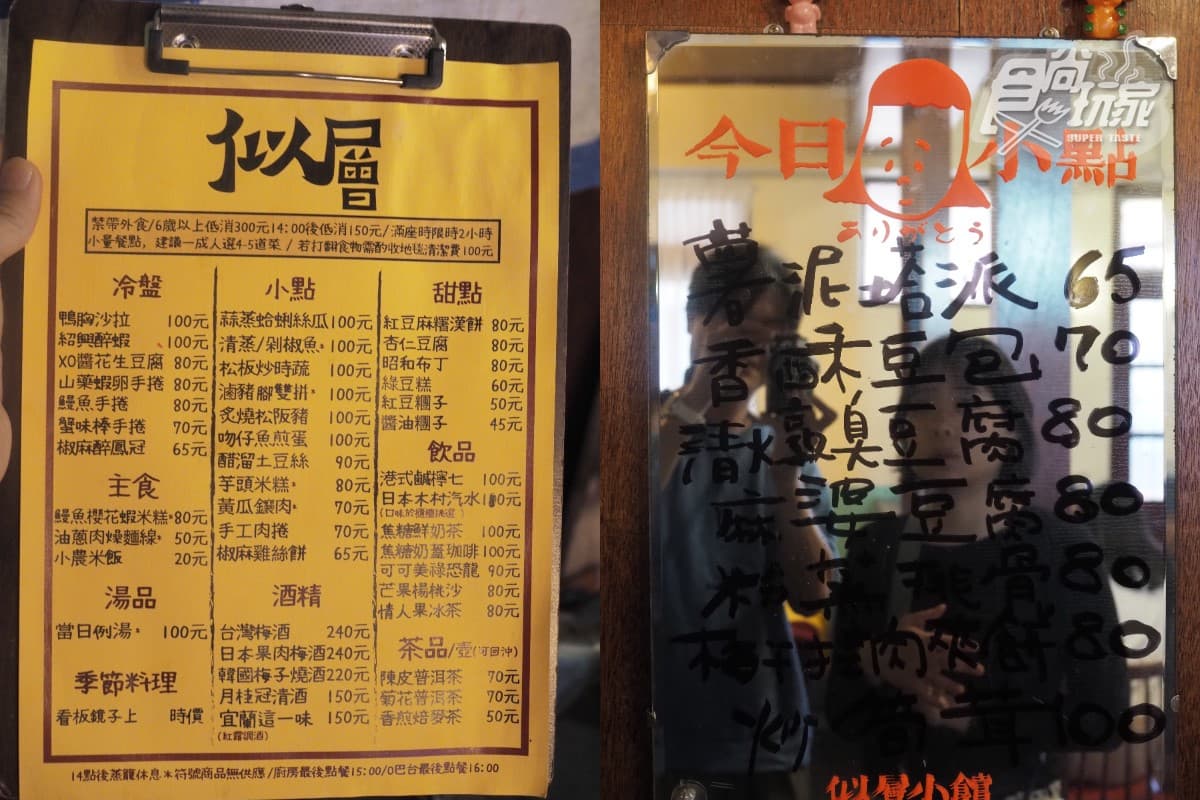 似層
禁帶外食/6歲以上低消300元14:00後低消150元/滿座時限時2小時
小量餐點，建議一成人選4-5道菜/若打翻食物需酌收地毯清潔費100元
冷盤
鴨胸沙拉 100元
紹興醉蝦 100元
XO醬花生豆腐 80元
山藥蝦卵手捲 80元
鰻魚手捲 80元
蟹味棒手捲 70元
椒麻醉鳳冠 65元
主食
鰻魚櫻花蝦米糕* 80元
油蔥肉燥麵線* 50元
小農米飯 20元
湯品
當日例湯* 100元
季節料理
看板鏡子上 時價
小點
蒜蒸蛤蜊絲瓜 100元
清蒸/剁椒魚* 100元
松板炒時蔬 100元
滷豬腳雙拼* 100元
炙燒松阪豬 100元
吻仔魚煎蛋 100元
醋溜土豆絲 90元
芋頭米糕* 80元
黃瓜鑲肉* 70元
手工肉捲 70元
椒麻雞絲餅 65元
酒精
台灣梅酒 240元
日本果肉梅酒 240元
韓國梅子燒酒 220元
月桂冠清酒 150元
宜蘭這一味 150元
(紅露調酒)
甜點
紅豆麻糬漢餅 80元
杏仁豆腐 80元
昭和布丁 80元
綠豆糕 60元
紅豆糰子 50元
醬油糰子 45元
飲品
港式鹹檸七 100元
日本木村汽水 100元
焦糖鮮奶茶 100元
焦糖奶蓋珈啡 100元
可可美祿恐龍 90元
芒果楊桃沙 80元
情人果冰茶 80元
茶品/壺(可回沖)
陳皮普洱茶 70元
菊花普洱茶 70元
香煎焙麥茶 50元
14點後蒸籠休息*符號商品無供應/廚房最後點餐15:00/吧台最後點餐16:00
食尚玩家
SUPER TASTE
今日小點
ありがとう
薯泥塔派 65
香酥豆包 70
清蒸臭豆腐 80
麻婆豆腐 80
排骨 80
梅干扣肉夾餅 80
炒 茸 100
似層小館